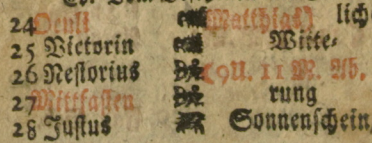 24 Oculi (Matthias) lich
25 Victorin Witte⸗
26 Nestorius (9U. 11 M. Ab.
27 Mittfasten rung
28 Justus Sonnenschein,